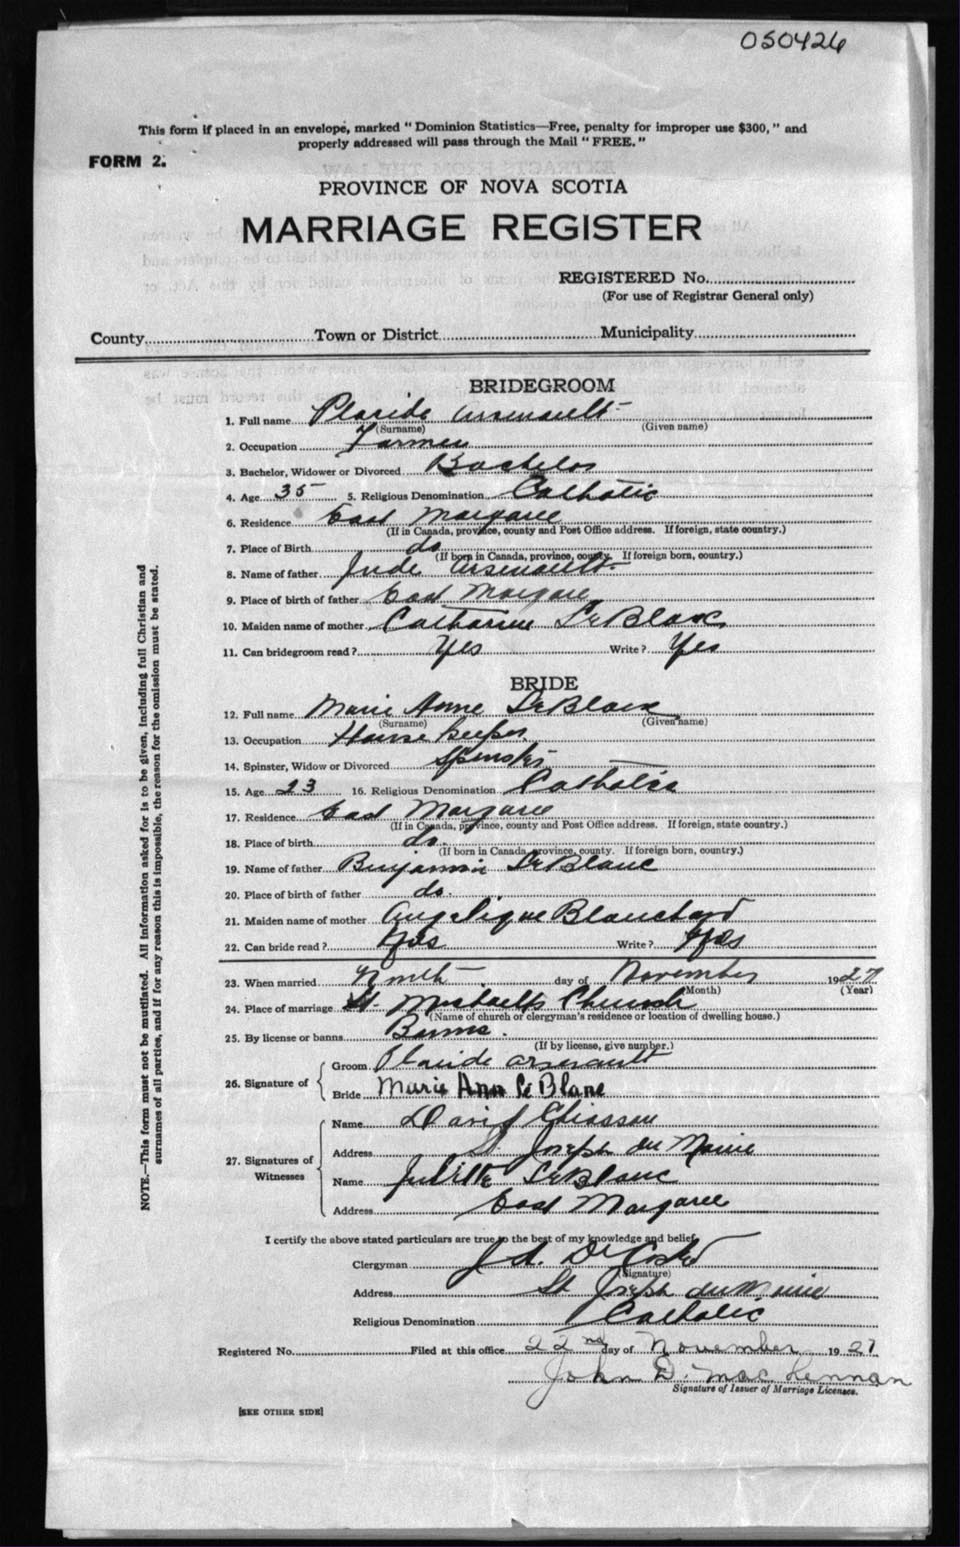 050426
This form if placed in an envelope, marked "Dominion Statistics—Free, penalty for improper use $300," and
properly addressed will pass through the Mail "FREE."
FORM 2.
PROVINCE OF NOVA SCOTIA
MARRIAGE REGISTER
REGISTERED No.
(For use of Registrar General only)
County Town or District Municipality
BRIDEGROOM
1. Full name Placide Arsenault
(Surname) (Given name)
2. Occupation Farmer
3. Bachelor, Widower or Divorced Bachelor
4. Age 35 5. Religious Denomination Catholic
6. Residence East Margaree
(If in Canada, province, county and Post Office address. If foreign, state country.)
7. Place of Birth do
(If born in Canada, province, county. If foreign born, country.)
8. Name of father Jude Arsenault
9. Place of birth of father East Margaree
10. Maiden name of mother Catharine LeBlanc
11. Can bridegroom read? Yes Write? Yes
BRIDE
12. Full name Marie Anne LeBlanc
(Surname) (Given name)
13. Occupation House keeper
14. Spinster, Widow or Divorced Spinster
15. Age 23 16. Religious Denomination Catholic
17. Residence East Margaree
(If in Canada, province, county and Post Office address. If foreign, state country.)
18. Place of birth do.
(If born in Canada, province, county. If foreign born, country.)
19. Name of father Benjamin LeBlanc
20. Place of birth of father do.
21. Maiden name of mother Angelique Blanchard
22. Can bride read? Yes Write? Yes
23. When married Ninth day of November 1927
(Month) (Year)
24. Place of marriage St. Michael's Church
(Name of church or clergyman's residence or location of dwelling house.)
25. By license or banns Banns.
(If by license, give number.)
26. Signature of
Groom Placide Arsenault
Bride Marie Ann Le Blanc
27. Signatures of Witnesses
Name David Chiasson
Address St. Joseph du Moine
Name Juditte LeBlanc
Address East Margaree
I certify the above stated particulars are true to the best of my knowledge and belief.
Clergyman
(Signature)
Address St Joseph du Moine
Religious Denomination Catholic
Registered No. Filed at this office 22nd day of November 1927
John D. MacLennan
Signature of Issuer of Marriage Licenses.
[SEE OTHER SIDE]
NOTE.—This form must not be mutilated. All information asked for is to be given, including full Christian and
surnames of all parties, and if for any reason this is impossible, the reason for the omission must be stated.